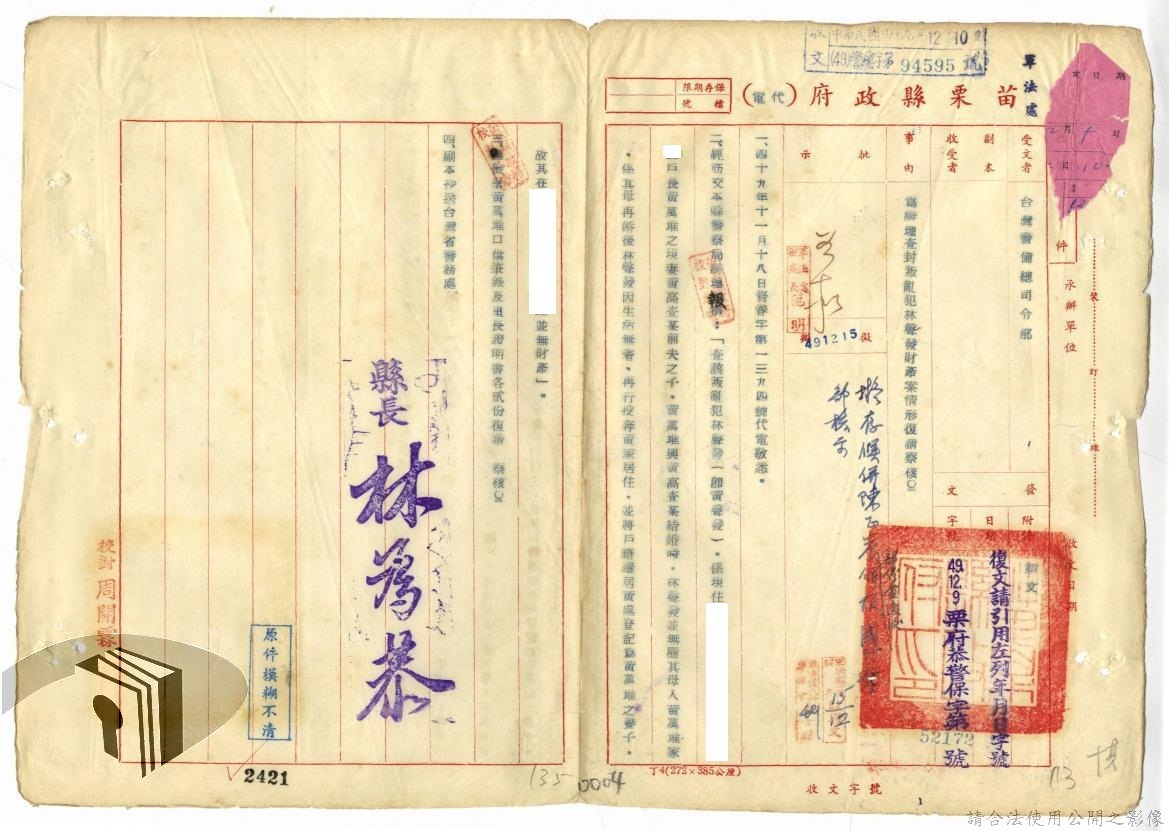 中華民國四十九年12月10日
收文(49)督總字第94595號
軍法處
苗栗縣政府(代電)
保存期限
檔號
受文者
台灣警備總司令部
副本
收受者
事由
為辦理查封叛亂犯林聲發財產案情形復請察核〇
批示
擬辦
491215
發文
附件
如文
日期
字號
復文請引用左列年月日字號
49.12.9
栗府恭警保字第52172號
件
承辦單位
裝訂線
收文日期
收文字號
一、四十九年十一月十八日督審字第一三九四號代電敬悉。
二、經飭交本縣警察局辦理報:「查該叛亂犯林聲發(即黃聲發),係現住
戶長黃萬堆之現妻黃高查某前夫之子,黃萬堆與黃高查某結婚時,林聲發並無隨其母入黃萬堆家
,係其母再婚後林聲發因生活無着,再行投奔黃家居住,並將戶籍遷居黃處登記為黃萬堆之養子,
故其在
並無財產」。
黃萬堆口供筆錄及里長證明書各貳份復請 察核〇
四、副本抄送台灣省警務處。
縣長 林為恭
校對 周開霖
原件模糊不清
2421
135
0004
丁4(272×385公厘)
113
請合法使用公開之影像